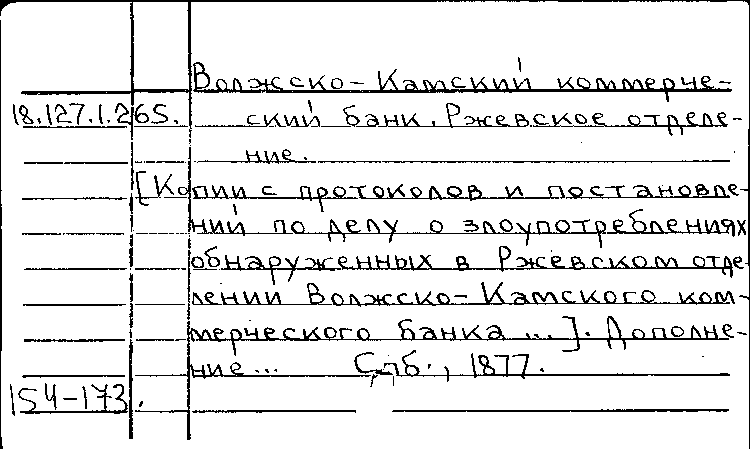 Волжско-Камский коммерче-
18.127.1.265. ский банк. Ржевское отделе-
ние.
[Копии с протоколов и постановле-
ний по делу о злоупотреблениях
обнаруженных в Ржевском отде-
лении Волжско-Камского ком-
мерческого банка ...]. Дополне-
ние... Спб., 1877.
154-173.